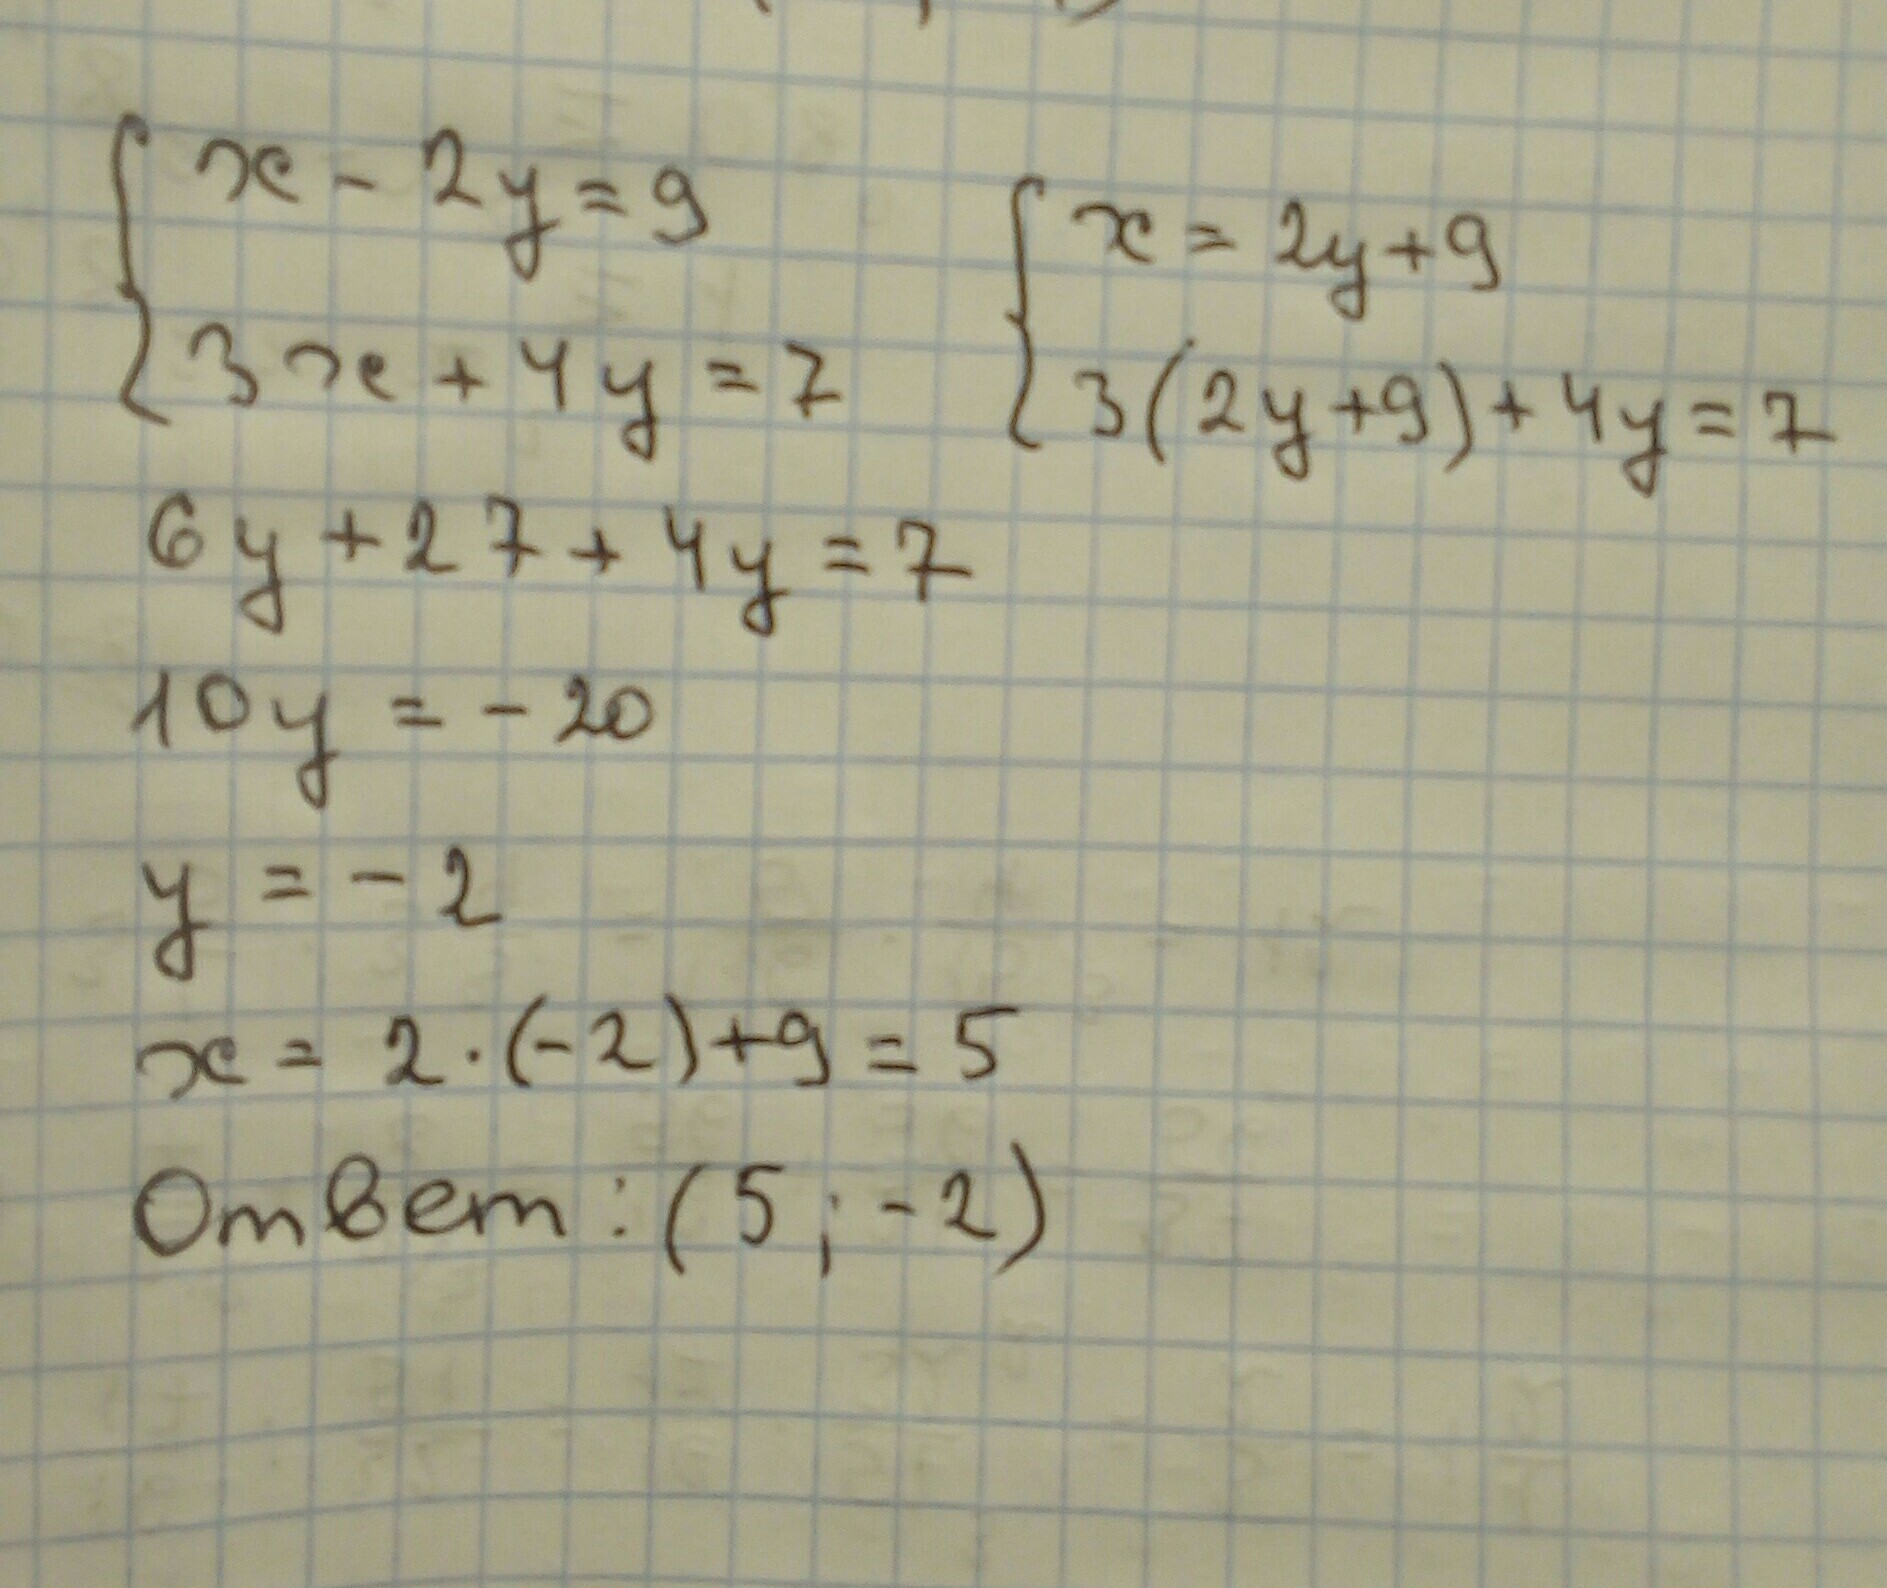 x - 2y = 9
3x + 4y = 7
x = 2y + 9
3(2y + 9) + 4y = 7
6y + 27 + 4y = 7
10y = - 20
y = - 2
x = 2 · (-2) + 9 = 5
Ответ: (5 ; -2)